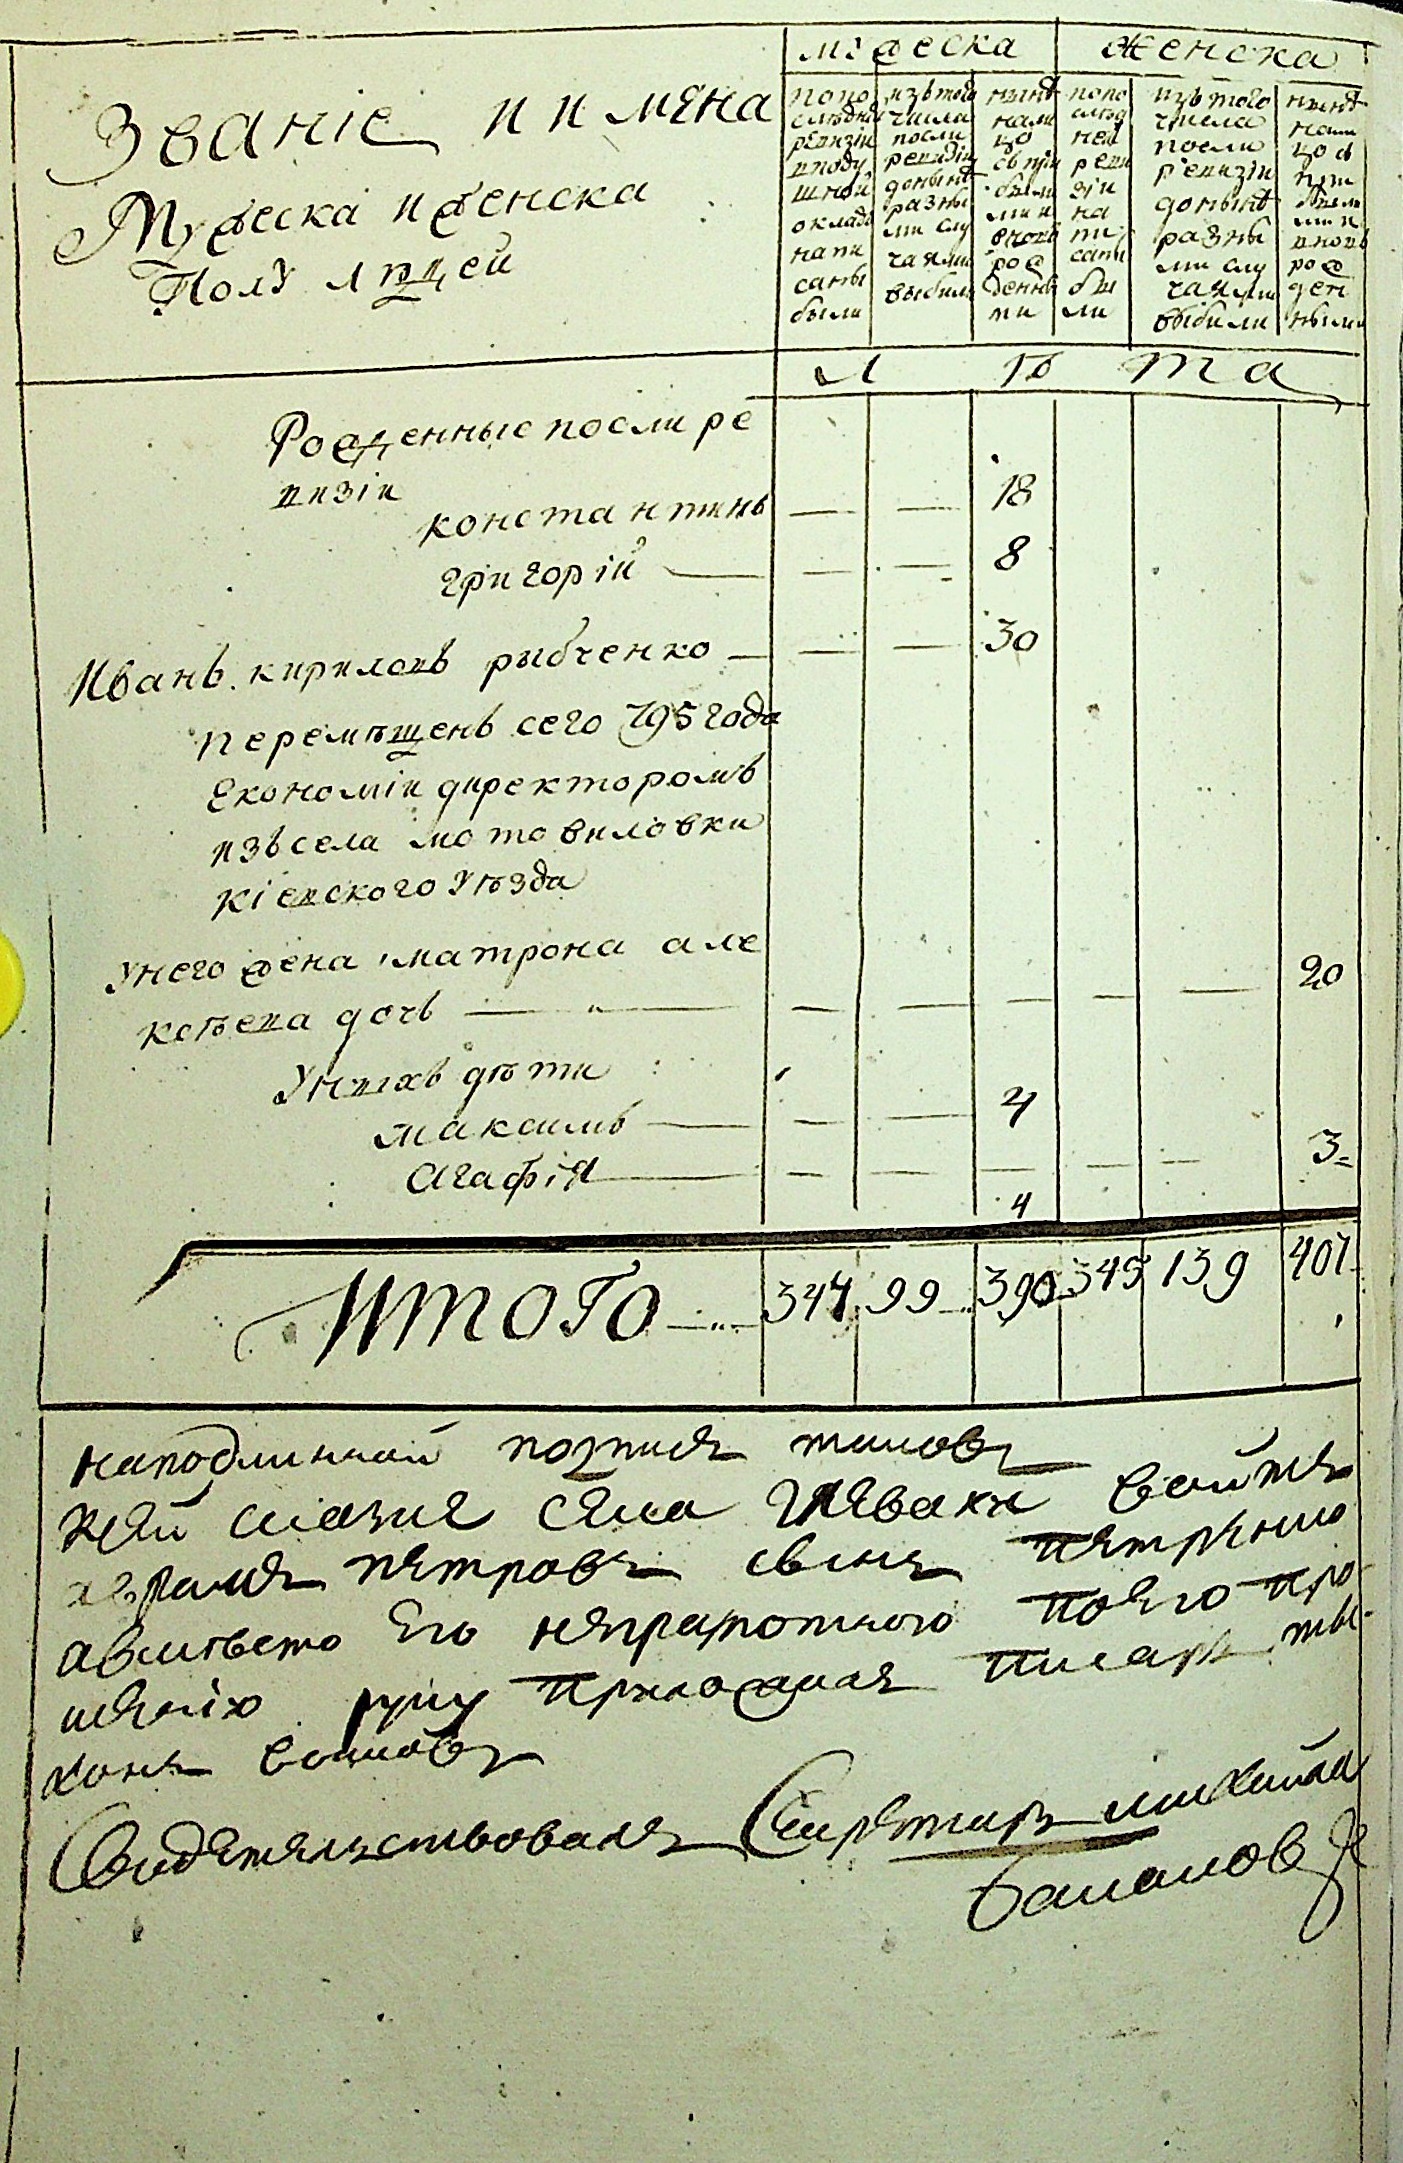 Званіе и имяна
Мужеска и женска
Полу людей
мужеска
женска
попо следнй ревизіи вподу шной окладъ напи саны были
изътого числа посли ревизіи донынѣ разны ми слу чаями выбыли
нынѣ нали цо съ при былы ми и вновь рож денны ми
попо след ней реви зіи на пи саны бы ли
изътого числа посли ревизіи донынѣ разны ми слу чаями выбыли
нынѣ нали цо съ при былы ми и вновь рож ден ными
л ѣ та
Рожденные посли ре
визіи
константинъ — — 18
григорій — — — 8
Иванъ кириловъ рыбченко — — — 30
перемѣщенъ сего 795 года
Економіи директоромъ
изъ села мотовиловки
кіевского уѣзда
Унего жена матрона але
ксѣева дочь — — — — — — 20
Унихъ дѣти
максимъ — — — 4
Агафія — — — — — — 3
4
Итого 344 99 390 345 139 401
наподлинной
села войтъ
петровъ сынъ
авмѣсто Его неграмотного поего про
шенію руку приложилъ писарь ти
хонъ
Свидетельствовалъ Секретарь михайла